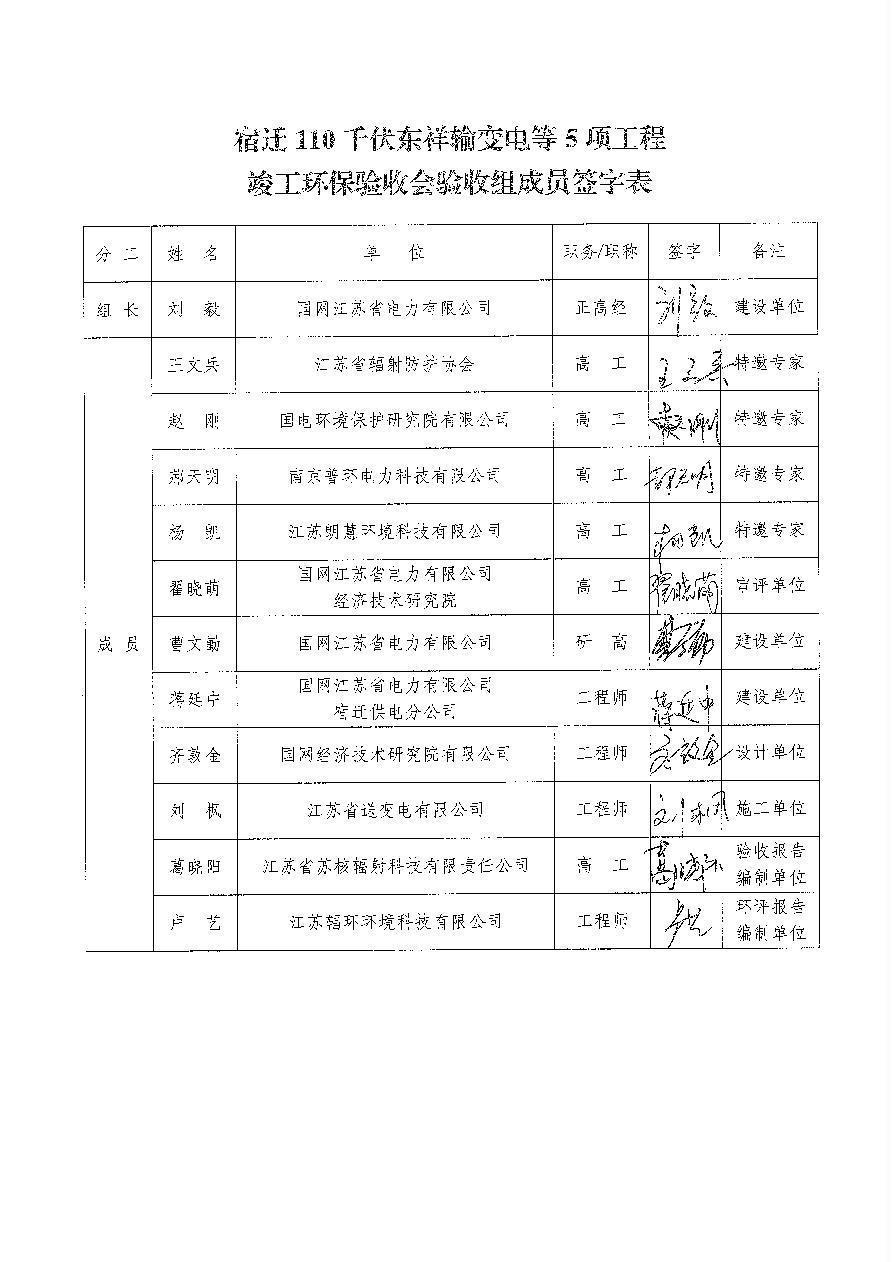 宿迁 110 千伏东祥输变电等 5 项工程
竣工环保验收会验收组成员签字表
分 工 姓 名 单 位 职务/职称 签字 备注
组 长 刘 毅 国网江苏省电力有限公司 正高经 刘毅 建设单位
成 员
王文兵 江苏省辐射防护协会 高 工 特邀专家
赵 刚 国电环境保护研究院有限公司 高 工 赵刚 特邀专家
郝天明 南京普环电力科技有限公司 高 工 郝天明 特邀专家
杨 凯 江苏朗慧环境科技有限公司 高 工 杨凯 特邀专家
翟晓萌 国网江苏省电力有限公司
经济技术研究院 高 工 翟晓萌 审评单位
曹文勤 国网江苏省电力有限公司 研 高 曹文勤 建设单位
蒋延宁 国网江苏省电力有限公司
宿迁供电分公司 工程师 建设单位
齐敦金 国网经济技术研究院有限公司 工程师 设计单位
刘 枫 江苏省送变电有限公司 工程师 刘枫 施工单位
葛晓阳 江苏省苏核辐射科技有限责任公司 高 工 葛晓阳 验收报告
编制单位
卢 艺 江苏辐环环境科技有限公司 工程师 卢艺 环评报告
编制单位